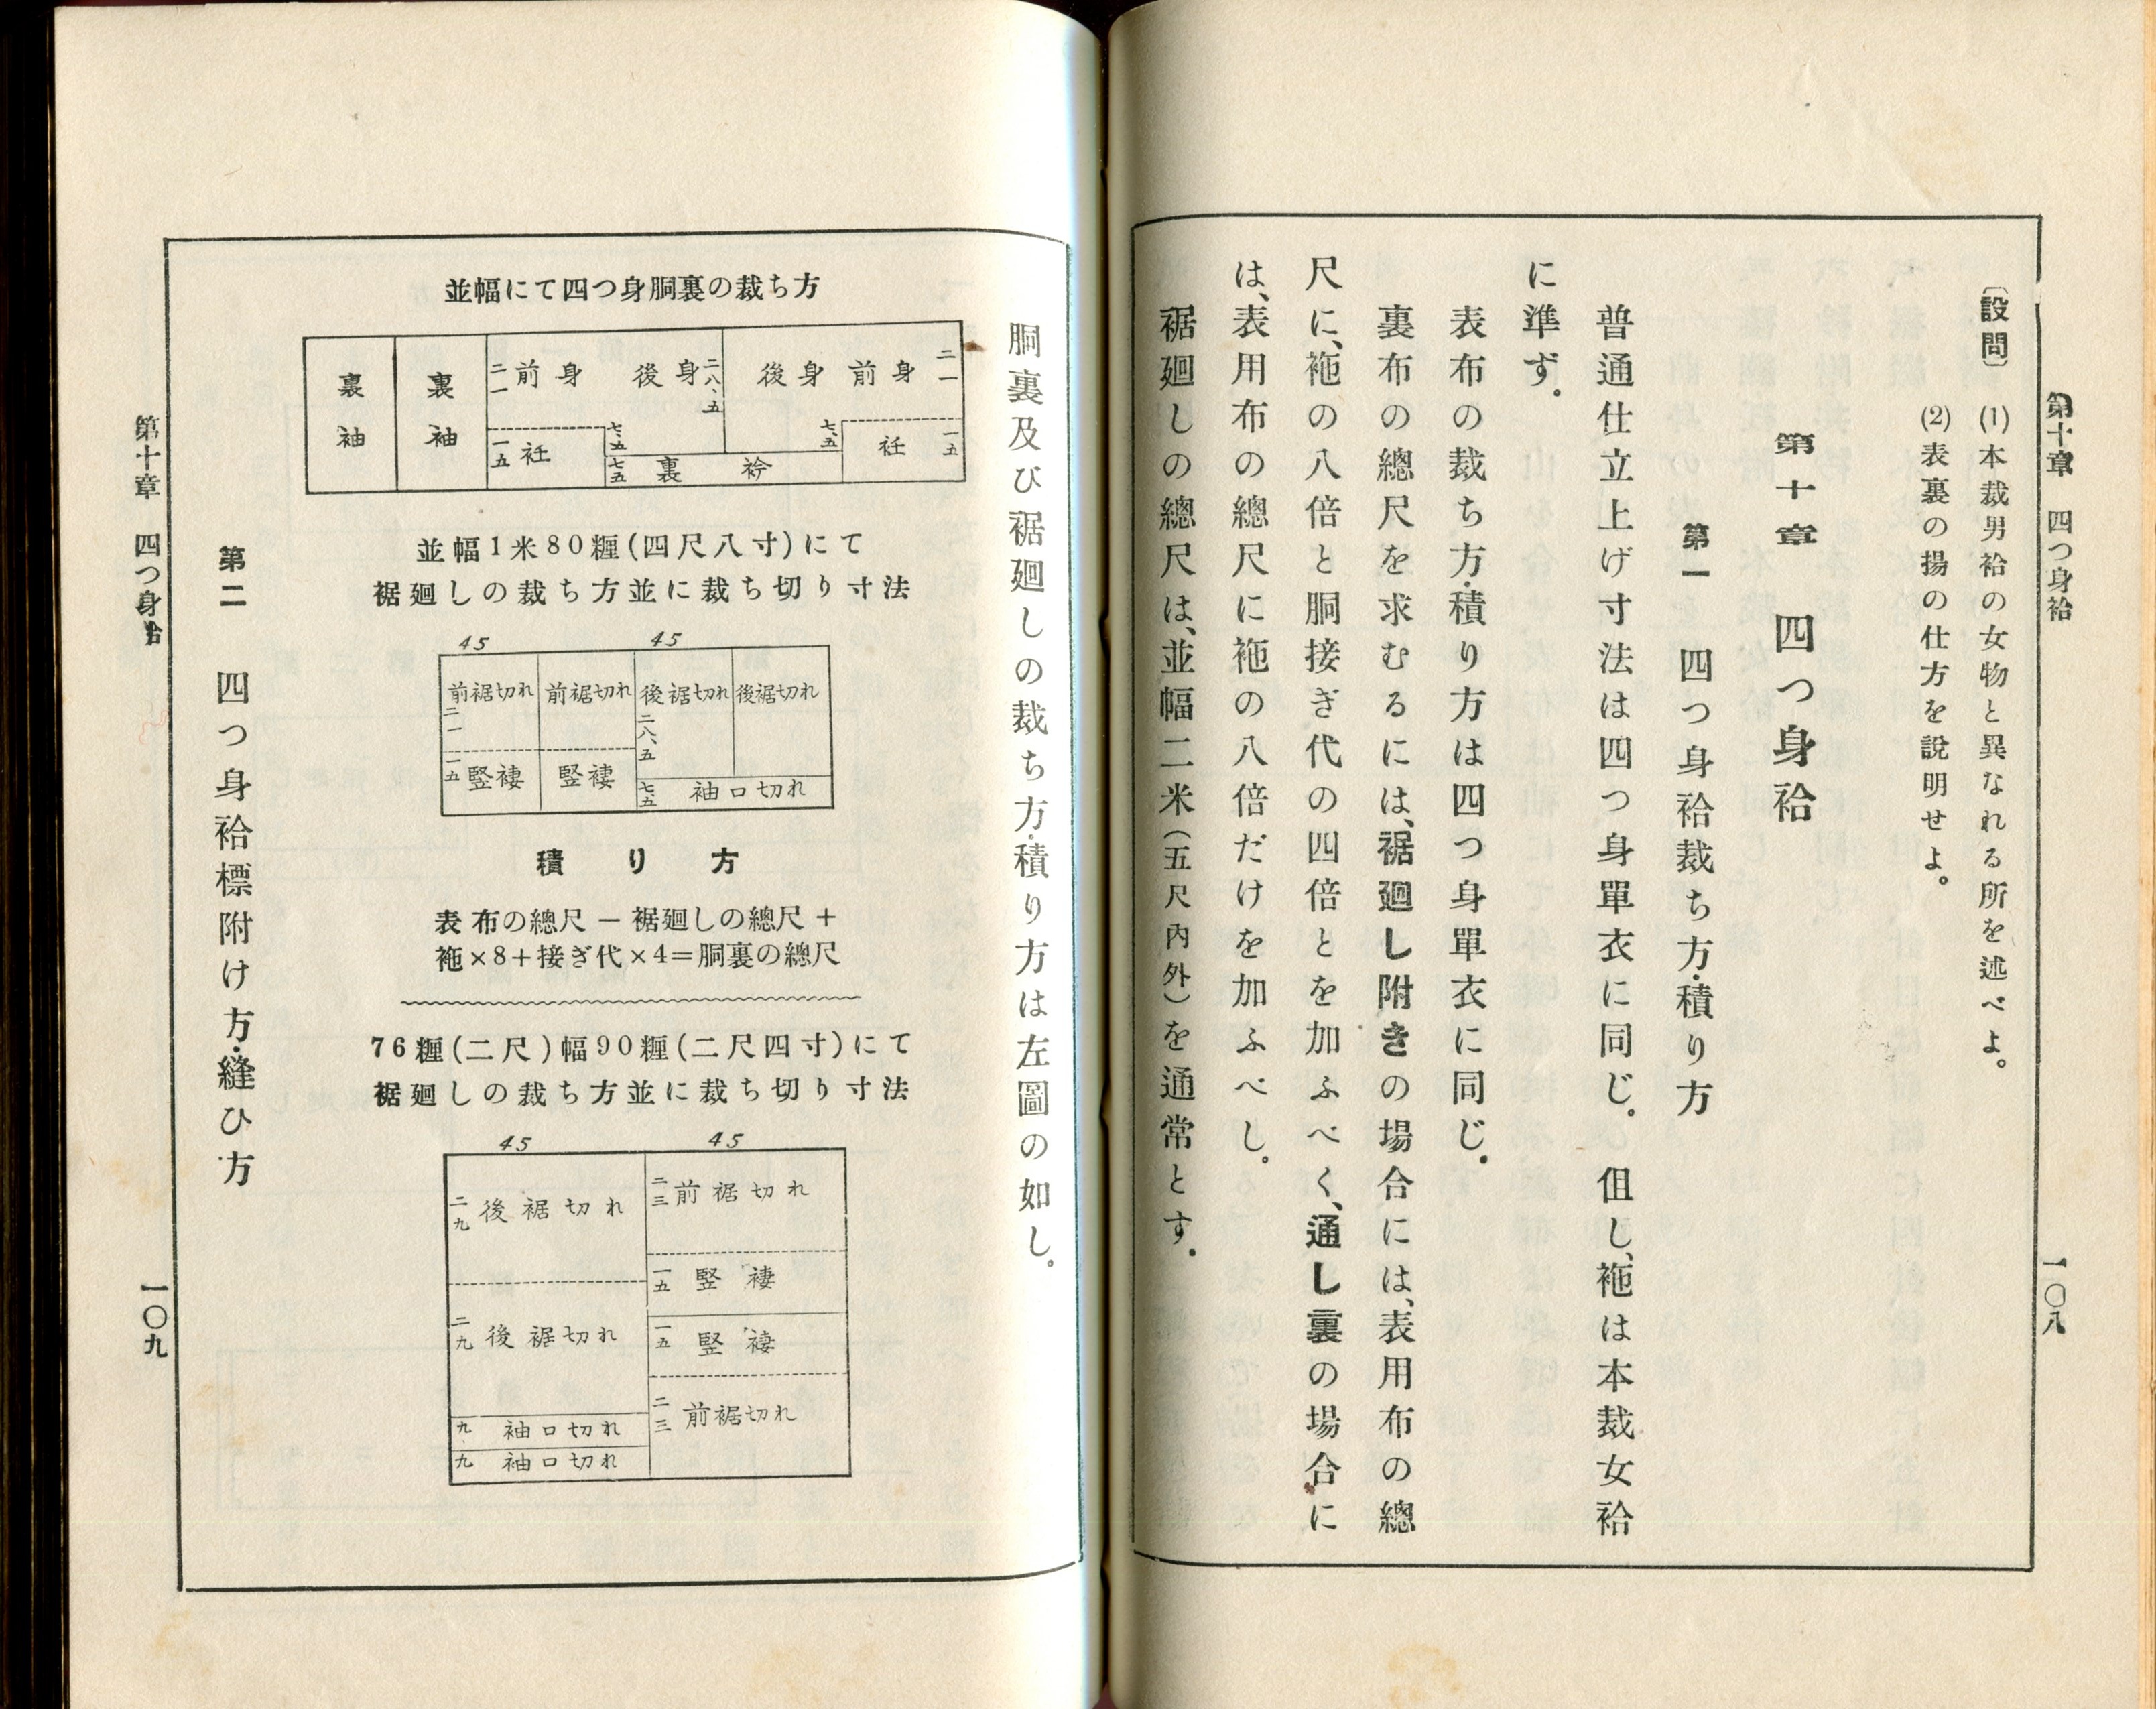 第十章　四つ身袷
一〇八
〔設問〕　(1)　本裁男袷の女物と異なれる所を述べよ。
(2)　表裏の揚の仕方を說明せよ。
第十章　四つ身袷
第一　四つ身袷裁ち方・積り方
普通仕立上げ寸法は四つ身單衣に同じ。但し、袘は本裁女袷
に準ず。
表布の裁ち方・積り方は四つ身單衣に同じ。
裏布の總尺を求むるには、裾廻し附きの場合には、表用布の總
尺に、袘の八倍と胴接ぎ代の四倍とを加ふべく、通し裏の場合に
は、表用布の總尺に袘の八倍だけを加ふべし。
裾廻しの總尺は、並幅二米(五尺內外)を通常とす。
胴裏及び裾廻しの裁ち方・積り方は左圖の如し。
並幅にて四つ身胴裏の裁ち方
裏袖
裏袖
二一 前身　後身 二八、五　後身　前身 二一
一五 衽　七、五　七、五 衽 一五
七五 裏　衿
並幅1米80糎(四尺八寸)にて
裾廻しの裁ち方並に裁ち切り寸法
45　45
前裾切れ　前裾切れ　後裾切れ　後裾切れ
二一　二八、五
一五 竪褄　竪褄　七五 袖口切れ
積り方
表布の總尺－裾廻しの總尺＋
袘×8＋接ぎ代×4＝胴裏の總尺
76糎(二尺)幅90糎(二尺四寸)にて
裾廻しの裁ち方並に裁ち切り寸法
45　45
二九 後裾切れ　二三 前裾切れ
一五 竪褄
二九 後裾切れ　一五 竪褄
二三 前裾切れ
九 袖口切れ
九 袖口切れ
第二　四つ身袷標附け方・縫ひ方
第十章　四つ身袷
一〇九